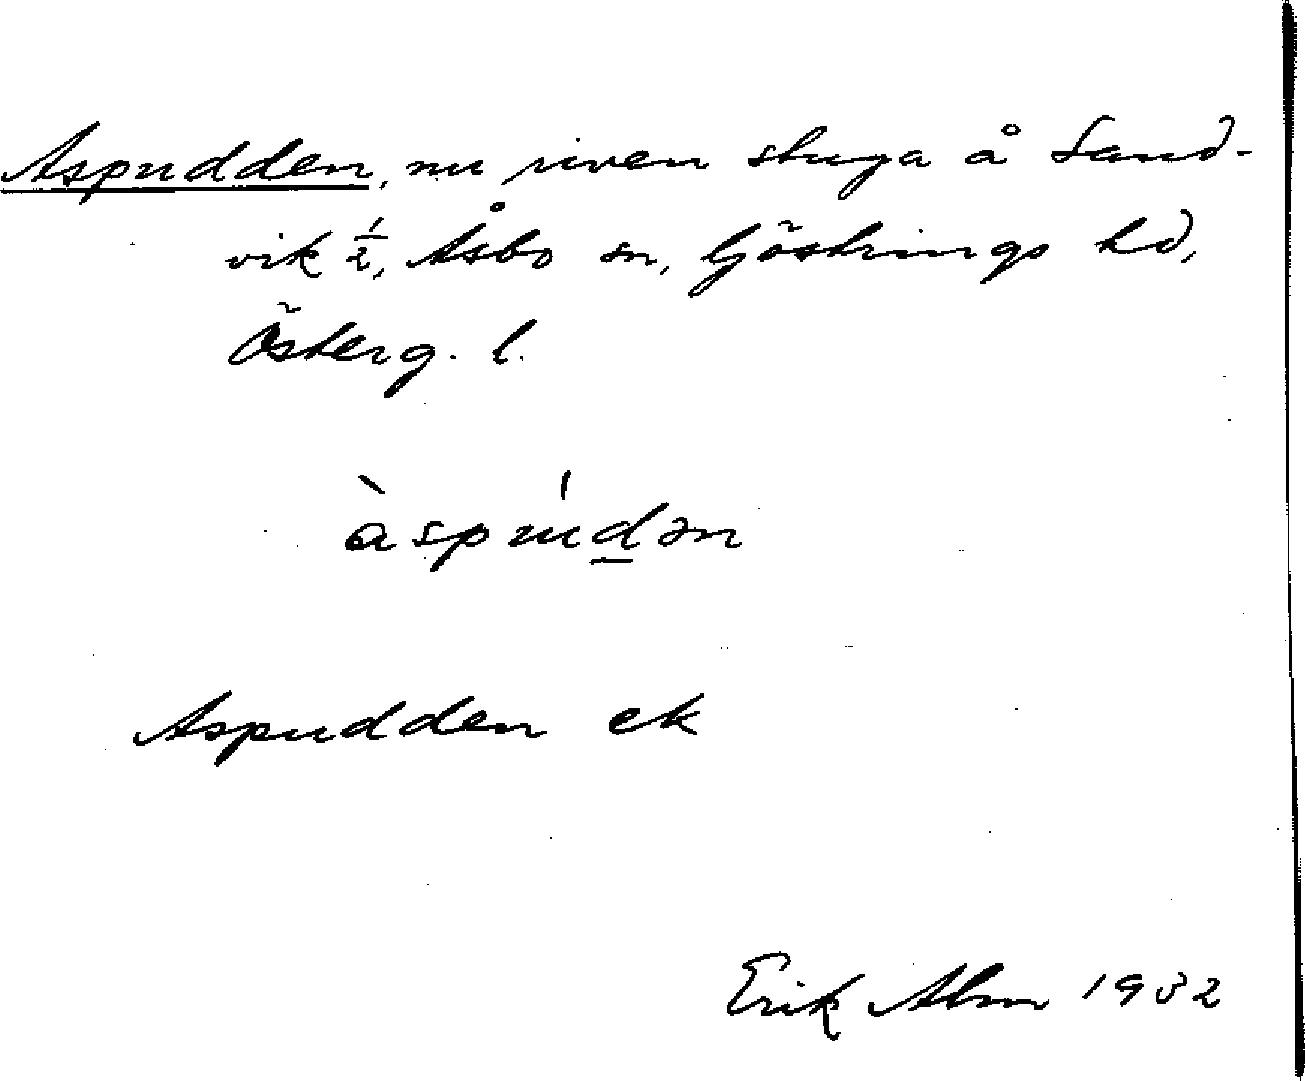 Aspudden, nu riven stuga å Sand-
vik 1/2, Åsbo sn, Göstrings hd,
Österg. l.
àspúdən
Aspudden ek
Erik Alm 1932